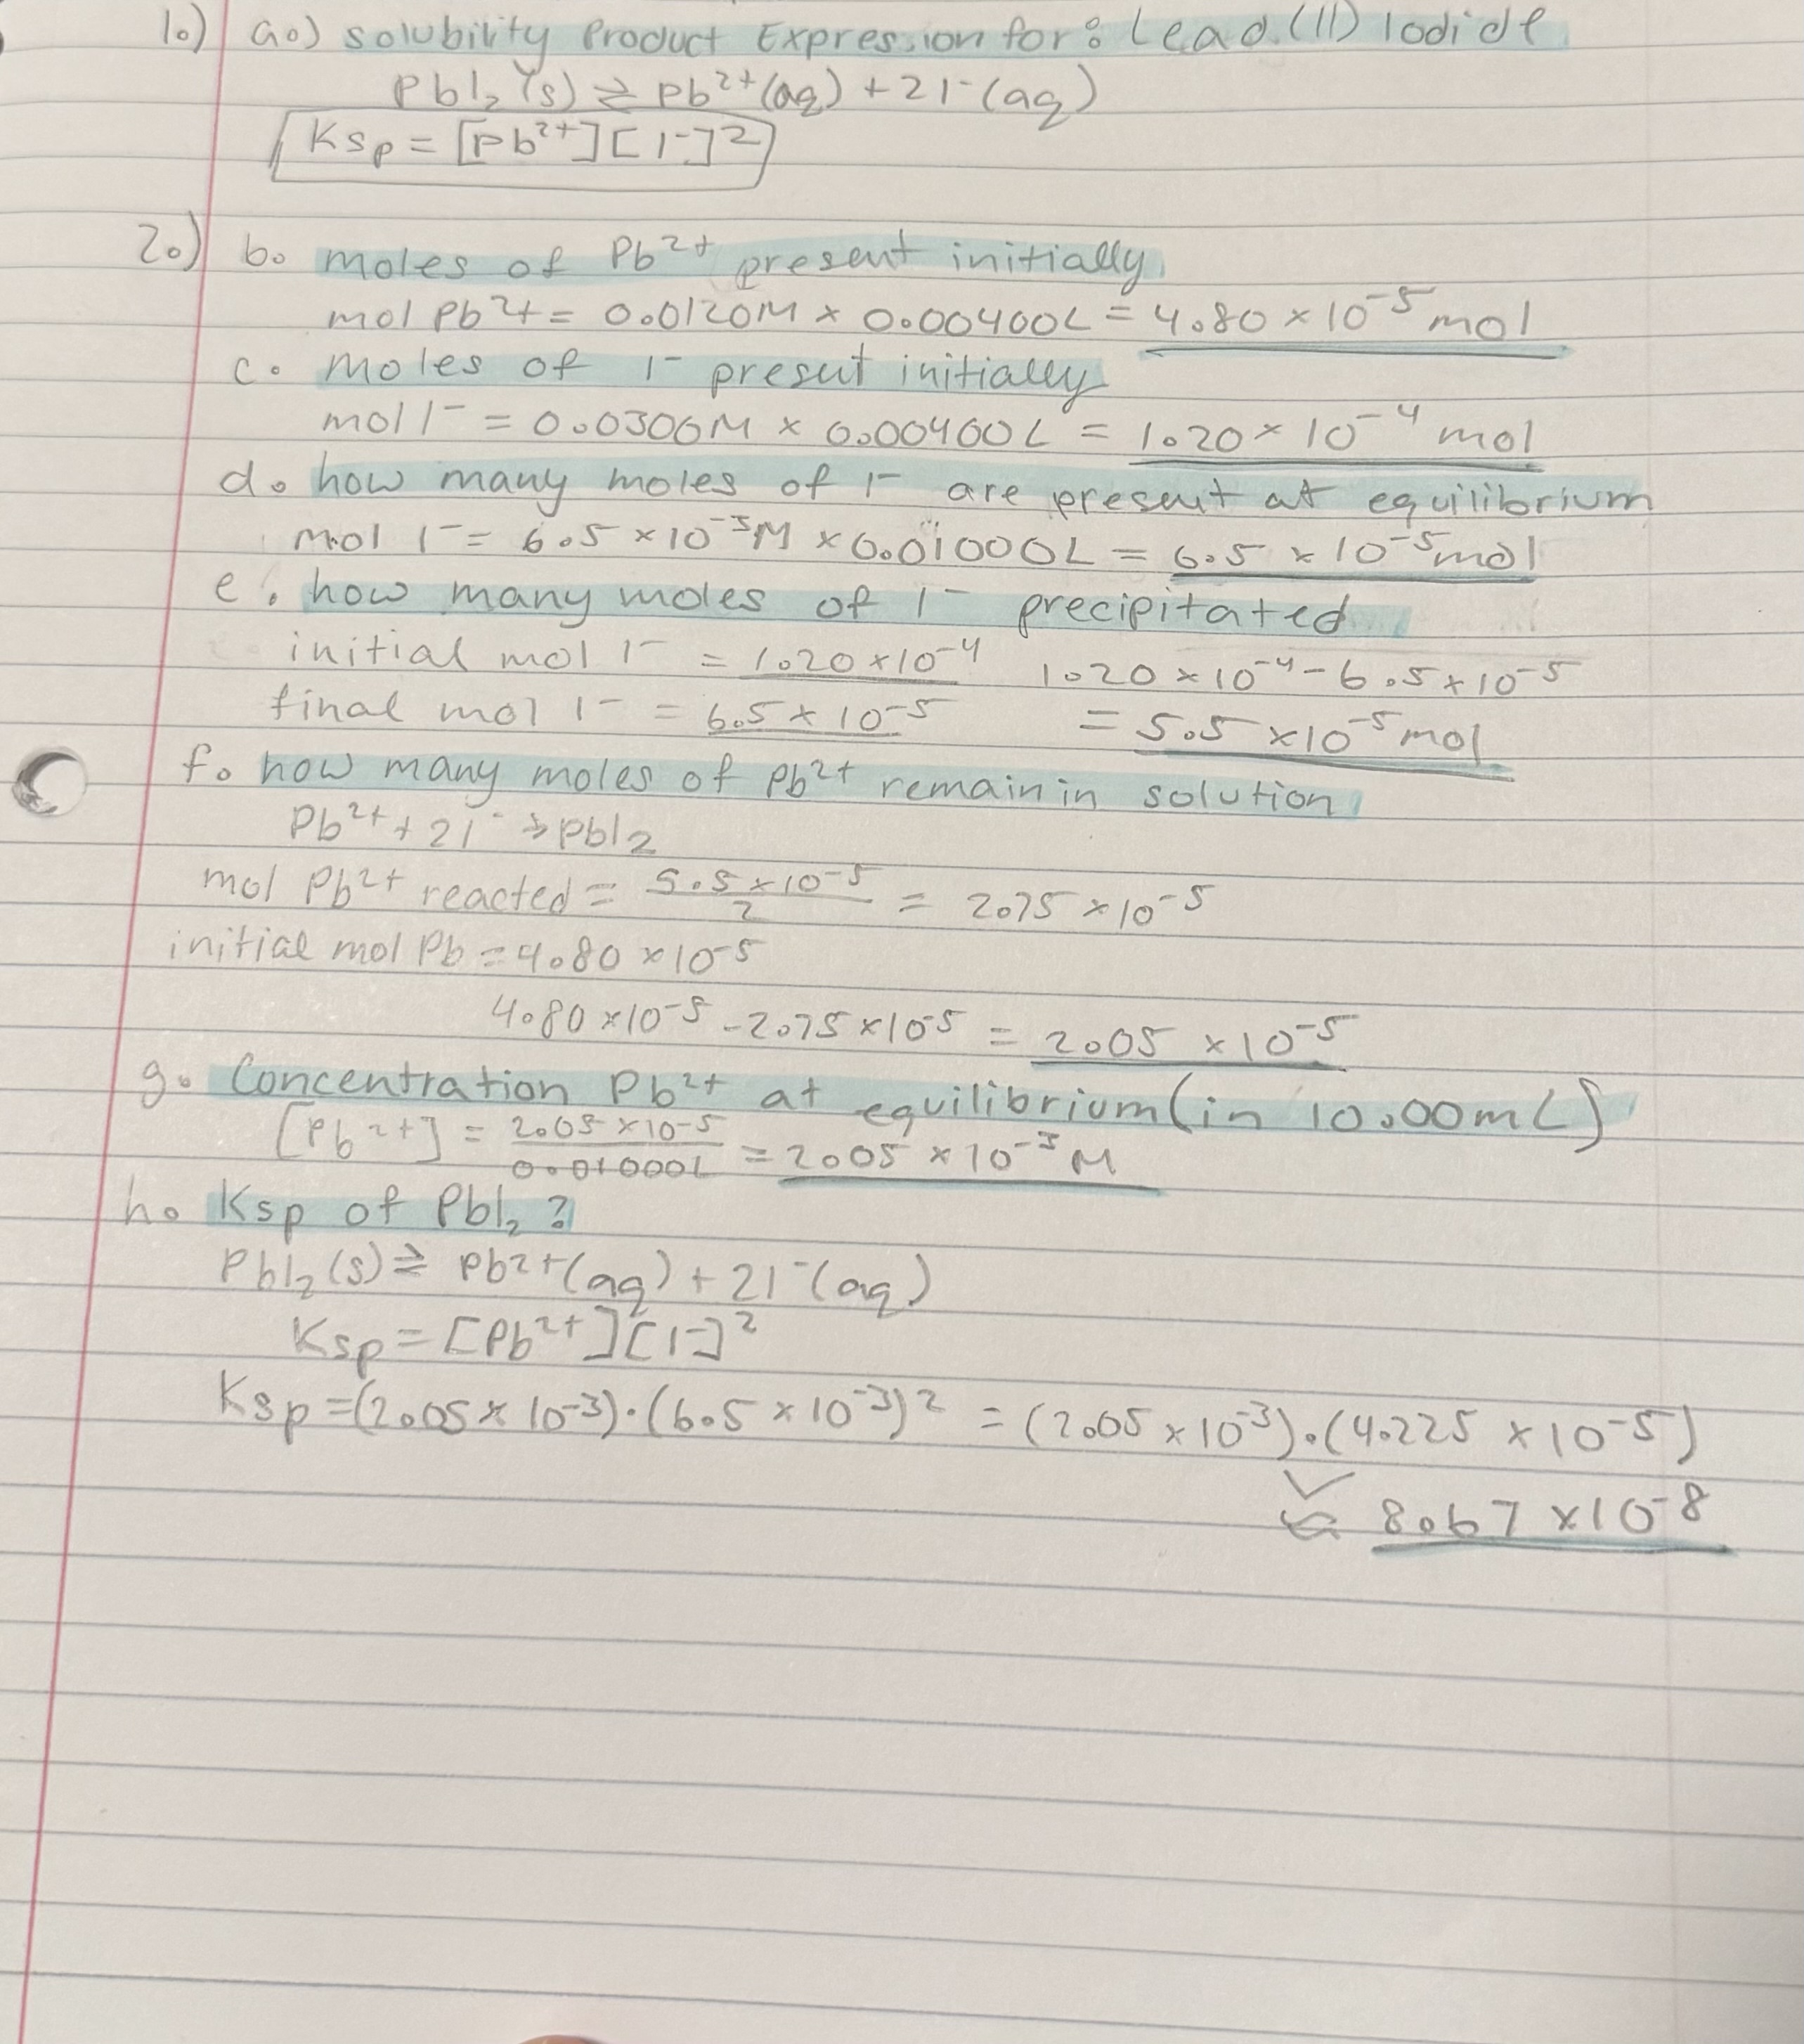 1.) a.) Solubility Product Expression for: Lead (II) Iodide
PbI₂ (s) ⇌ Pb²⁺(aq) + 2I⁻(aq)
Ksp = [Pb²⁺][I⁻]²
2.) b. moles of Pb²⁺ present initially
mol Pb²⁺ = 0.0120M × 0.00400L = 4.80 × 10⁻⁵ mol
c. moles of I⁻ present initially
mol I⁻ = 0.0300M × 0.00400L = 1.20 × 10⁻⁴ mol
d. how many moles of I⁻ are present at equilibrium
mol I⁻ = 6.5 × 10⁻³M × 0.01000L = 6.5 × 10⁻⁵ mol
e. how many moles of I⁻ precipitated
initial mol I⁻ = 1.20 × 10⁻⁴ 1.20 × 10⁻⁴ - 6.5 × 10⁻⁵
final mol I⁻ = 6.5 × 10⁻⁵ = 5.5 × 10⁻⁵ mol
f. how many moles of Pb²⁺ remain in solution
Pb²⁺ + 2I⁻ → PbI₂
mol Pb²⁺ reacted = 5.5 × 10⁻⁵ / 2 = 2.75 × 10⁻⁵
initial mol Pb = 4.80 × 10⁻⁵
4.80 × 10⁻⁵ - 2.75 × 10⁻⁵ = 2.05 × 10⁻⁵
g. Concentration Pb²⁺ at equilibrium (in 10.00mL)
[Pb²⁺] = 2.05 × 10⁻⁵ / 0.01000L = 2.05 × 10⁻³ M
h. Ksp of PbI₂?
PbI₂ (s) ⇌ Pb²⁺(aq) + 2I⁻(aq)
Ksp = [Pb²⁺][I⁻]²
Ksp = (2.05 × 10⁻³)·(6.5 × 10⁻³)² = (2.05 × 10⁻³)·(4.225 × 10⁻⁵)
≈ 8.67 × 10⁻⁸